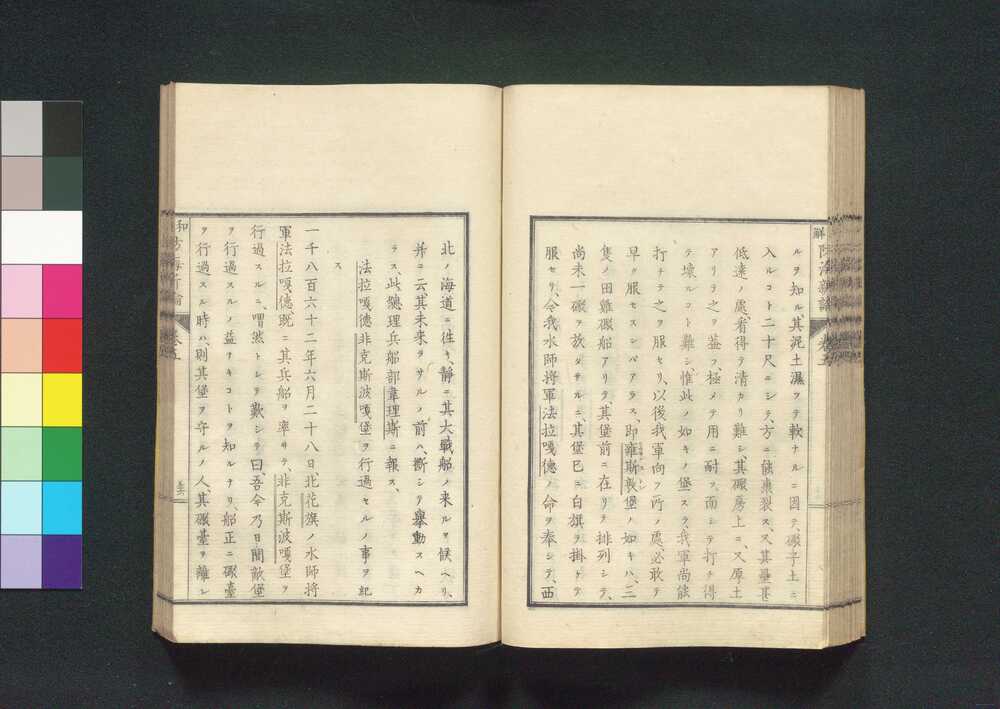 ルヲ知ル、其泥土濕フテ軟ナルニ因テ、礮子土ニ
入ルコト二十尺ニシテ、方ニ能轟裂ス、又其臺甚
低遠ノ處、看得テ清カリ難シ、其礮房上ニ、又厚土
アリテ之ヲ蓋フ、極メテ用ニ耐ヲ、而シテ打チ得
テ壞ルコト難シ、惟此ノ如キノ堡スラ、我軍尚能
打チテ之ヲ服セリ、以後我軍向フ所ノ處必敢テ
早ク服セスンバアラス、即雍斯敦堡ノ如キハ、二
隻ノ田雞礮船アリテ、其堡前ニ在リテ排列シテ、
尚未一礮ヲ放ダサルニ、其堡已ニ白旗ヲ掛ケテ
服セリ、今我水師將軍法拉嘎德ノ命ヲ奉シテ、西
北ノ海道ニ往キ、靜ニ其大戰船ノ來ルヲ候ヘリ、
并ニ云、其未來ラサルノ前ハ、斷シテ擧動スヘカ
ラス、此總理兵船部韋理斯ニ報ス、
法拉嘎德非克斯波嘎堡ヲ行過セルノ事ヲ紀
ス
一千八百六十二年六月二十八日、北花旗ノ水師將
軍法拉嘎德既ニ其兵船ヲ率ヰテ、非克斯波嘎堡ヲ
行過スルニ、喟然トシテ歎シテ曰、吾今乃日間敵堡
ヲ行過スルノ益ナキコトヲ知ルナリ、船正ニ礮臺
ヲ行過スル時ハ、則其堡ヲ守ルノ人、其礮臺ヲ離レ
卷五